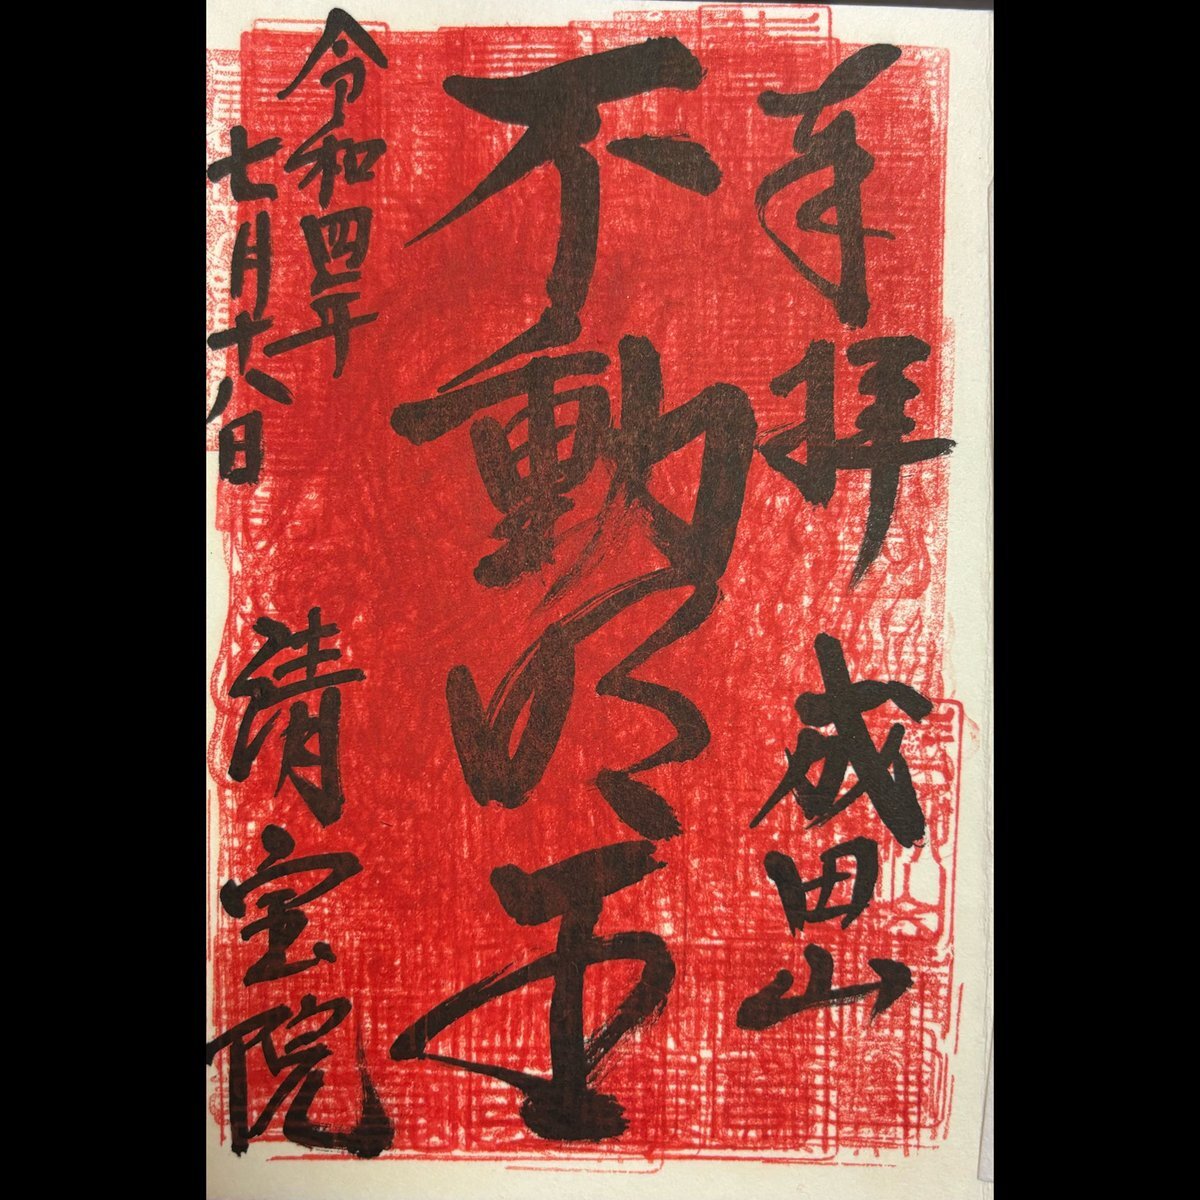 奉拝 成田山
不動明王
令和四年
七月十八日
清宝院